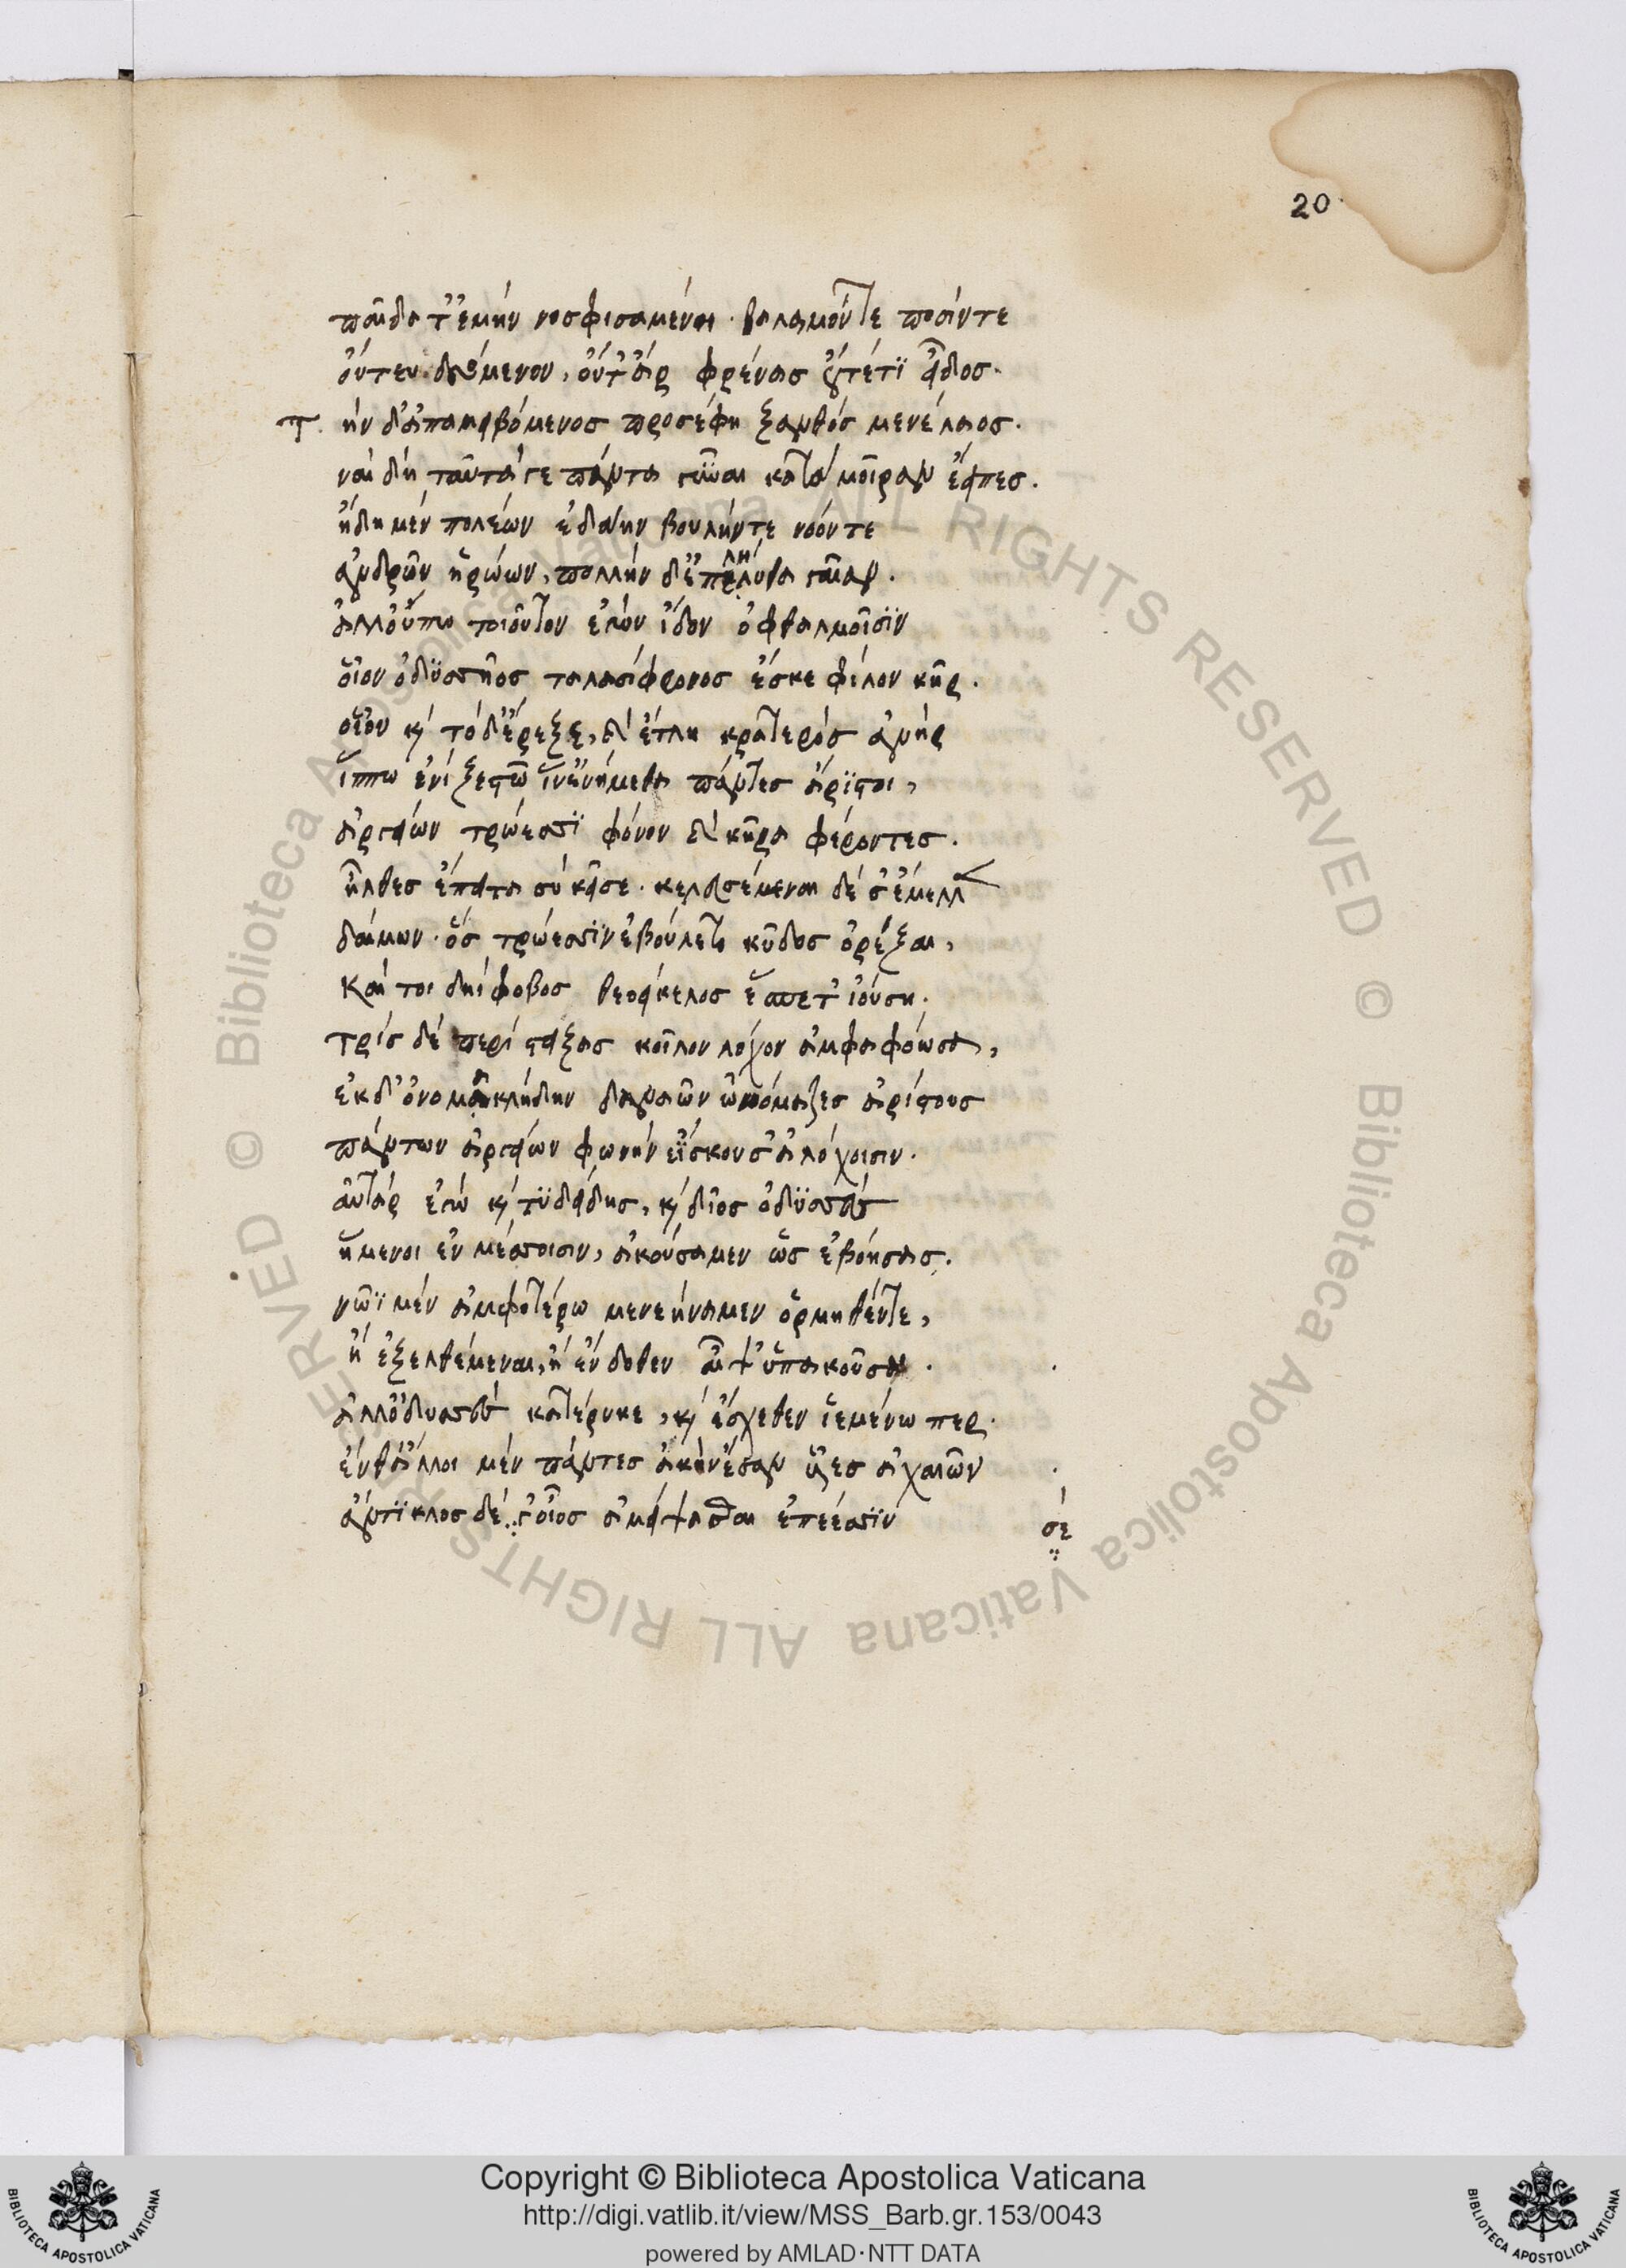 20
παῖδά τ' ἐμὴν νοσφισαμένην. θάλαμόν τε πόσίν τε
οὔ τευ δευόμενον, οὔτ' ἂρ φρένας οὔτέ τϊ εἶδος.
Τὴν δ' ἀπαμειβόμενος προσέφη ξανθὸς μενέλαος.
ναὶ δὴ ταῦτά γε πάντα γύναι κατὰ μοῖραν ἔειπες.
ἤδη μὲν πολέων ἐδάην βουλήν τε νόον τε
ἀνδρῶν ἡρώων, πολλὴν δ' ἐπελήλυθα γαῖαν.
ἀλλ' οὔπω τοιοῦτον ἐγὼν ἴδον ὀφθαλμοῖσϊν
οἷον ὀδϋσσῆος ταλασίφρονος ἔσκε φίλον κῆρ.
οἷον κỳ τόδ' ἔρεξε, καὶ ἔτλη κρατερὸς ἀνὴρ
ἵππω ἐνὶ ξεστῶ ἵν' ἐνήμεθα πάντες ἄρϊστοι,
ἀργείων τρώεσσϊ φόνον καὶ κῆρα φέροντες.
ἦλθες ἔπειτα σὺ κεῖσε. κελευσέμεναι δέ σ' ἔμελλε
δαίμων. ὃς τρώεσσϊν ἐβούλετο κῦδος ὀρέξαι,
Καί τοι δηίφοβος θεοείκελος ἕσπετ' ἰούση.
τρὶς δὲ περίστειξας κοῖλον λόχον ἀμφαφόωσα,
ἐκ δ' ὀνομακλήδην δαναῶν ὠνόμαζες ἀρίστους
πάντων ἀργείων φωνὴν ἐΐσκουσ' ἀλόχοισιν.
αὐτὰρ ἐγὼ καὶ τϋδείδης, καὶ δῖος ὀδϋσσεὺς
ἥμενοι ἐν μέσσοισιν, ἀκούσαμεν ὡς ἐβόησας.
νῶϊ μὲν ἀμφοτέρω μενεήναμεν ὁρμηθέντε,
ἢ ἐξελθέμεναι, ἢ ἔνδοθεν αἶψ' ὑπακοῦσαι.
ἀλλ' ὀδυσσεὺς κατέρυκε, καὶ ἔσχεθεν ἱεμένω περ.
ἔνθ' ἄλλοι μὲν πάντες ἀκὴν ἔσαν υἷες ἀχαιῶν
ἄντϊκλος δέ σέ γ' οἶος ἀμείψασθαι ἐπέεσσϊν
σέ
Copyright © Biblioteca Apostolica Vaticana
http://digi.vatlib.it/view/MSS_Barb.gr.153/0043
powered by AMLAD·NTT DATA